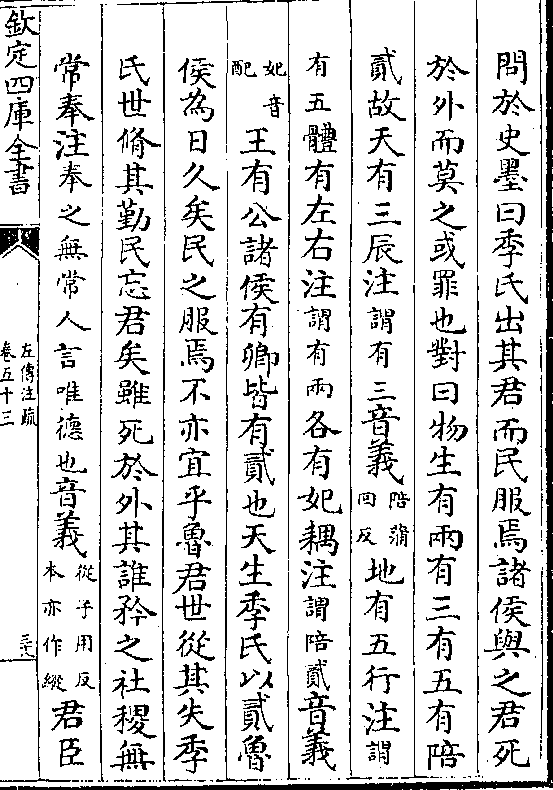 問於史墨曰季氏出其君而民服焉諸侯與之君死
於外而莫之或罪也對曰物生有兩有三有五有陪
貳故天有三辰注謂有三音義陪蒲回反地有五行注謂
有五體有左右注謂有兩各有妃耦注謂陪貳音義
妃音配王有公諸侯有卿皆有貳也天生季氏以貳魯
侯為日久矣民之服焉不亦宜乎魯君世從其失季
氏世脩其勤民忘君矣雖死於外其誰矜之社稷無
常奉注奉之無常人言唯德也音義從子用反本亦作縱君臣
欽定四庫全書
左傳注疏
卷五十三